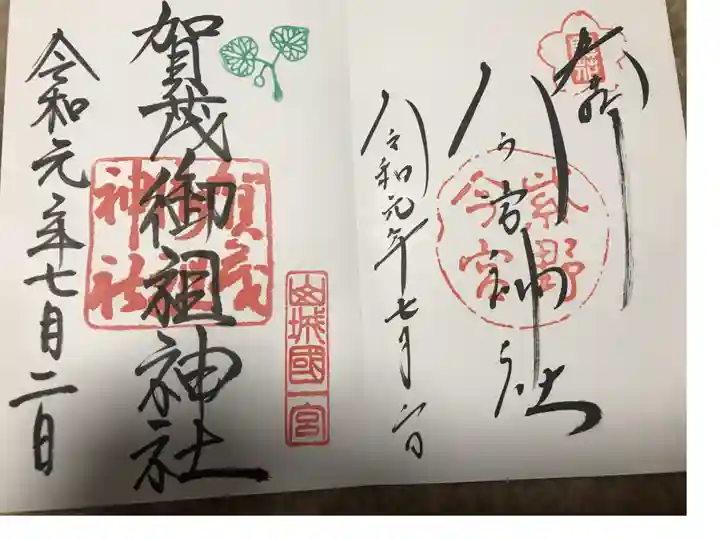 奉拝
今宮神社
紫野
今宮
令和元年七月二日
賀茂御祖神社
賀茂
御祖
神社
山城國一宮
令和元年七月二日